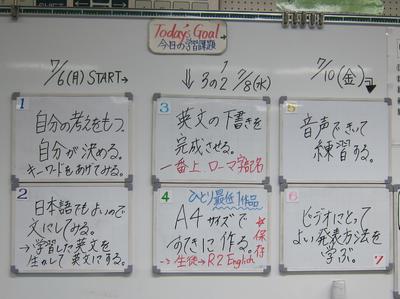 Today's Goal
今日の学習課題
7/6(月) START→
⇓ 3の2 7/8(水)
7/10(金)
1
自分の考えをもつ。
自分が決める。
キーワードをあげてみる。
2
日本語でもよいので
文にしてみる。
→学習した英文を
生かして英文にする。
3
英文の下書きを
完成させる。
一番上、ローマ字記名
4
ひとり最低1作品
A4サイズで
すてきに作る。
※保存
→生徒→R2 English
5
音声できいて
練習する。
6
ビデオにとって
よい発表方法を
学ぶ。